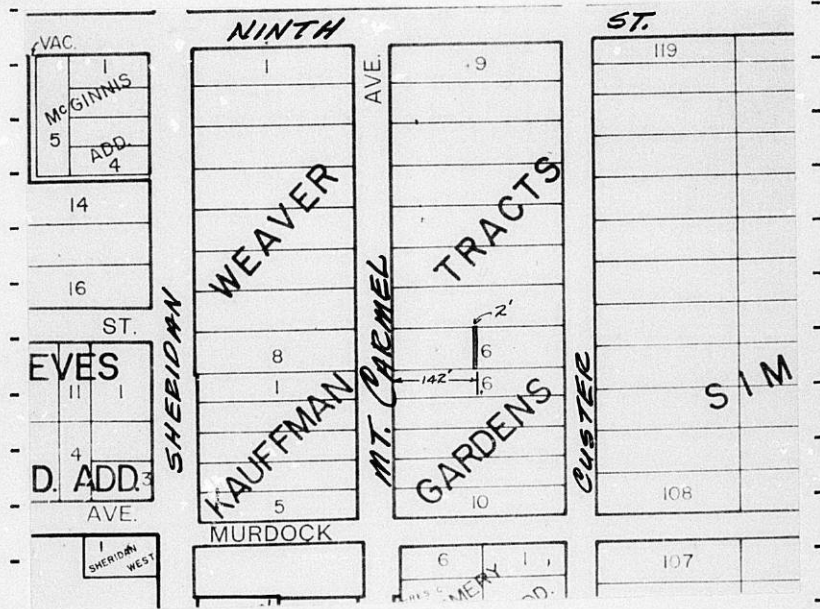 NINTH ST.
VAC.
1
McGINNIS
5
ADD.
4
14
16
ST.
EVES
11 1
4
D. ADD. 3
AVE.
1
SHERIDAN
WEST
SHERIDAN
1
WEAVER
8
1
KAUFFMAN
5
MURDOCK
AVE.
MT. CARMEL
9
TRACTS
2'
6
142'
6
GARDENS
10
6 1
MERY
DD.
CUSTER
119
SIM
108
107